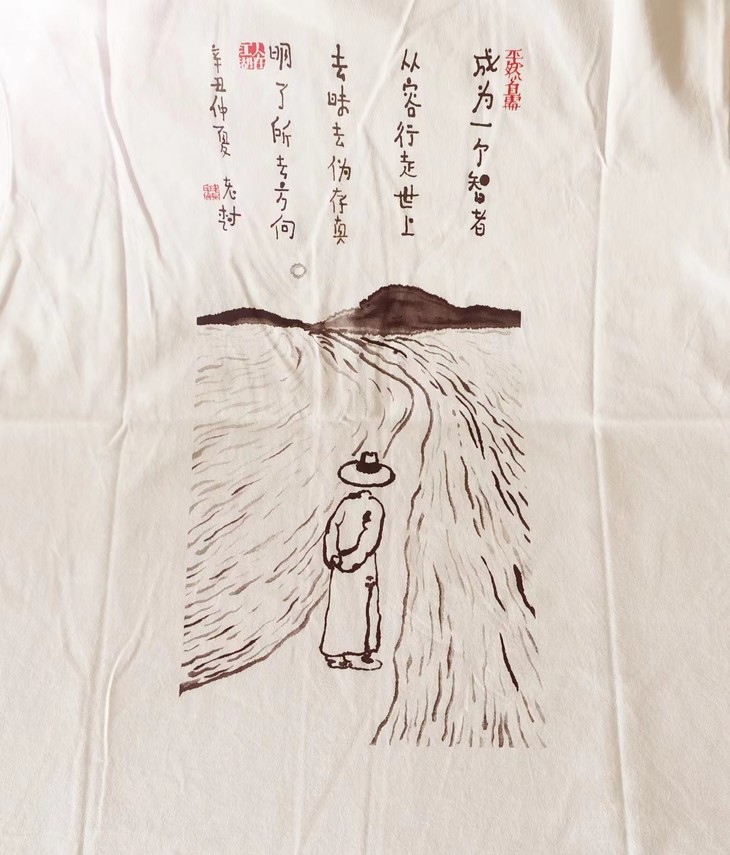 成为一个智者
从容行走世上
去昧去伪存真
明了所去方向
人在江湖
辛丑仲夏
老树